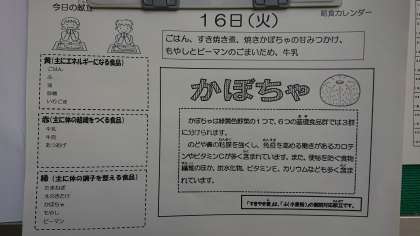 今日の献立
給食カレンダー
16日(火)
ごはん、すき焼き煮、焼きかぼちゃの甘みつかけ、
もやしとピーマンのごまいため、牛乳
黄(主にエネルギーになる食品)
ごはん
ふ
油
砂糖
いりごま
赤(主に体の組織をつくる食品)
牛乳
牛肉
あつあげ
緑(主に体の調子を整える食品)
たまねぎ
えのきたけ
かぼちゃ
もやし
ピーマン
かぼちゃ
かぼちゃは緑黄色野菜の1つで、6つの基礎食品群では3群
に分けられます。
のどや鼻の粘膜を強くし、免疫を高める働きがあるカロテ
ンやビタミンCが多く含まれています。また、便秘を防ぐ食物
繊維のほか、炭水化物、ビタミンE、カリウムなども多く含ま
れています。
「すきやき煮」は、「ふ(小麦粉)」の個別対応献立です。